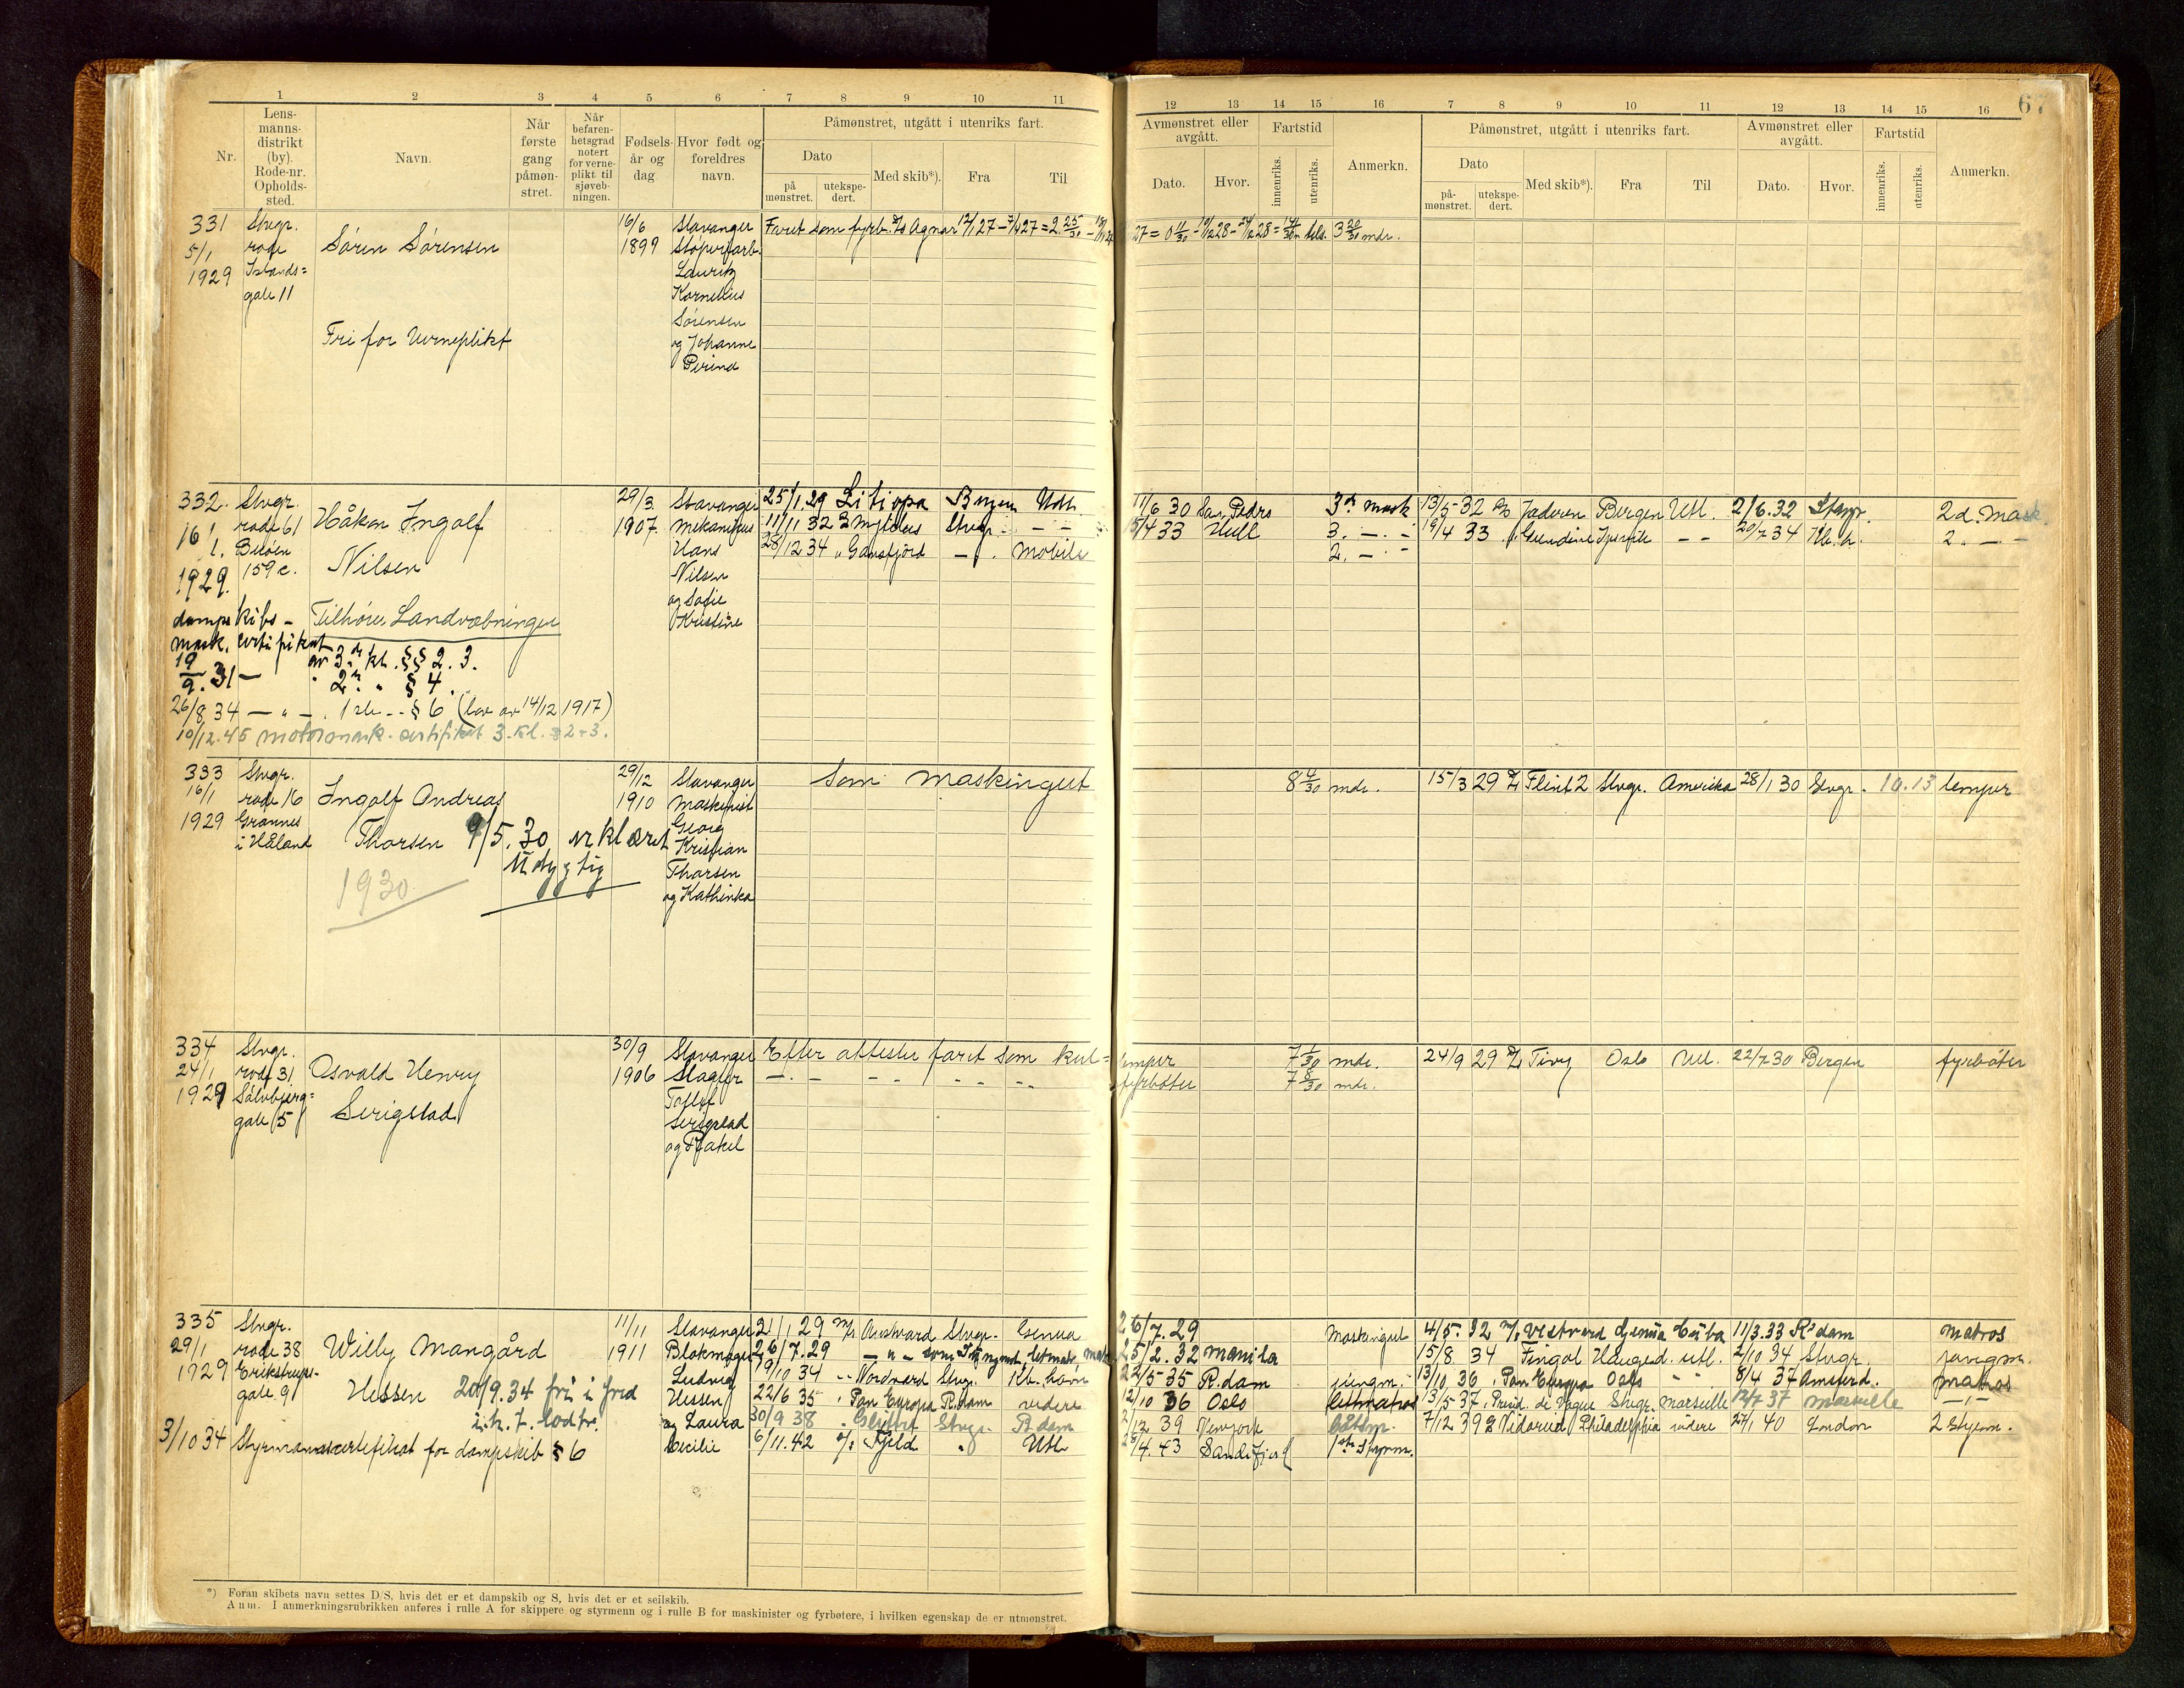 67
1 2 3 4 5 6 7 8 9 10 11 12 13 14 15 16 7 8 9 10 11 12 13 14 15 16
Nr.
Lensmannsdistrikt (by). Rode-nr. Opholdssted.
Navn.
Når første gang påmønstret.
Når befarenhetsgrad notert for verneplikt til sjøvebningen.
Fødselsår og dag
Hvor født og foreldres navn.
Påmønstret, utgått i utenriks fart.
Dato
på mønstret.
utekspedert.
Med skib*).
Fra
Til
Avmønstret eller avgått.
Dato.
Hvor.
Fartstid
innenriks.
utenriks.
Anmerkn.
Påmønstret, utgått i utenriks fart.
Dato
påmønstret.
utekspedert.
Med skib*).
Fra
Til
Avmønstret eller avgått.
Dato.
Hvor.
Fartstid
innenriks.
utenriks.
Anmerkn.
331 Stvgr. 16/6 Stavanger Faret som fyrb. D/s Agnar
5/1 rode Søren Sørensen 1899 Støperiarb.
1929 Islands= Lauritz
gate 11 Kornelius
Sørensen
Fri for Verneplikt og Johanne
332. Stvgr. 29/3 Stavanger 25/1.29 Bergen Utl. 11/6 30 San Pedro 3dr mask 13/5-32 D/s Jaderen Bergen Utl. 2/6.32 Stvgr. 2d. Mask.
16/1. rode 61 Håkon Ingolf 1907. Mekanikus 11/11 32 Stvgr. – – 5/4 33 Hull 3. – . – 19/4 33 – – 20/7 34 Kb.h. 2. – –
1929. Buøen Nilsen Hans 28/12 34 „ Gansfjord – „ . Mobile 2. – . –
159c. Nilsen
og Sofie
Kristine
dampskibs- Tilhører Landvæbningen
mask. certifikat
19/9.31 – av 3dr kl. §§ 2. 3.
" 2n. " § 4.
26/8 34 – " – . 1ste - - § 6 (lov av 14/12 1917)
10/12.45 motormask. certifikat 3. kl. § 2 + 3.
333 Stvgr. 29/12 Stavanger Som maskingut 8 4/30 mdr. 15/3 29 D/s Flint 2 Stvgr. Amerika 28/1 30 Stvgr. 10.13 lemper
16/1 rode 16 Ingolf Andreas 1910 Maskinist
1929 Grannes Thorsen 9/5.30 erklæret Georg
i Håland udygtig Kristian
1930 Thorsen
og Kathinka
334 Stvgr. 30/9 Stavanger Efter attester faret som kul=lemper 7 1/30 mdr. 24/9 29 D/s Tivy Oslo Utl. 22/7 30 Bergen fyrbøter
24/1 rode 31 Osvald Henry 1906 Slagter – . – – – – – – – fyrbøter 7 8/30 mdr.
1929 Sølvbjerg=
gate 5 Serigstad Serigstad
og Rakel
335 Stvgr. 11/11 Stavanger 21/1 29 m/s Austvard Stvgr. Genua 26/7.29 Maskingut 4/5. 32 m/s Vestvard Genua Cuba 11/3.33 R.dam matros
29/1 rode 38 Willy Mangård 1911 Blokmager 26/7.29 – " – 25/2. 32 Manila 15/8 34 Fingal Hauges. utl. 2/10 34 Stvgr. jungm.
1929 Erikstrups- Ludvig 19/10 34 -- Nordvard Stvgr. Kb.havn 22/5-35 R.dam jungm. 13/10 36 „ Pan Europa Oslo " " 8/4 37 Amsterd. matros
gate 9 Hessen 20/9.34 fri i fred Hessen 22/6 35 „ Pan Europa R.dam videre 12/10 36 Oslo lettmatros 13/5-37 Stvgr. Marseille 12/7 37 Marseille – „ –
og Laura 30/9 38 Stvgr. R.dam 39 Newyork båtsm. 7/12 39 Vidarvid Philadelphia videre 27/1 40 London 2 Styrm.
3/10 34 Styrmannscertifikat for dampskib § 6 Cecilie 6/11.42 Fjeld " Utl. /4. 43 Sandefjord 1ste Styrm.
*) Foran skibets navn settes D/S, hvis det er et dampskib og S, hvis det er et seilskib.
Anm. I anmerkningsrubrikken anføres i rulle A for skippere og styrmenn og i rulle B for maskinister og fyrbøtere, i hvilken egenskap de er utmønstret.